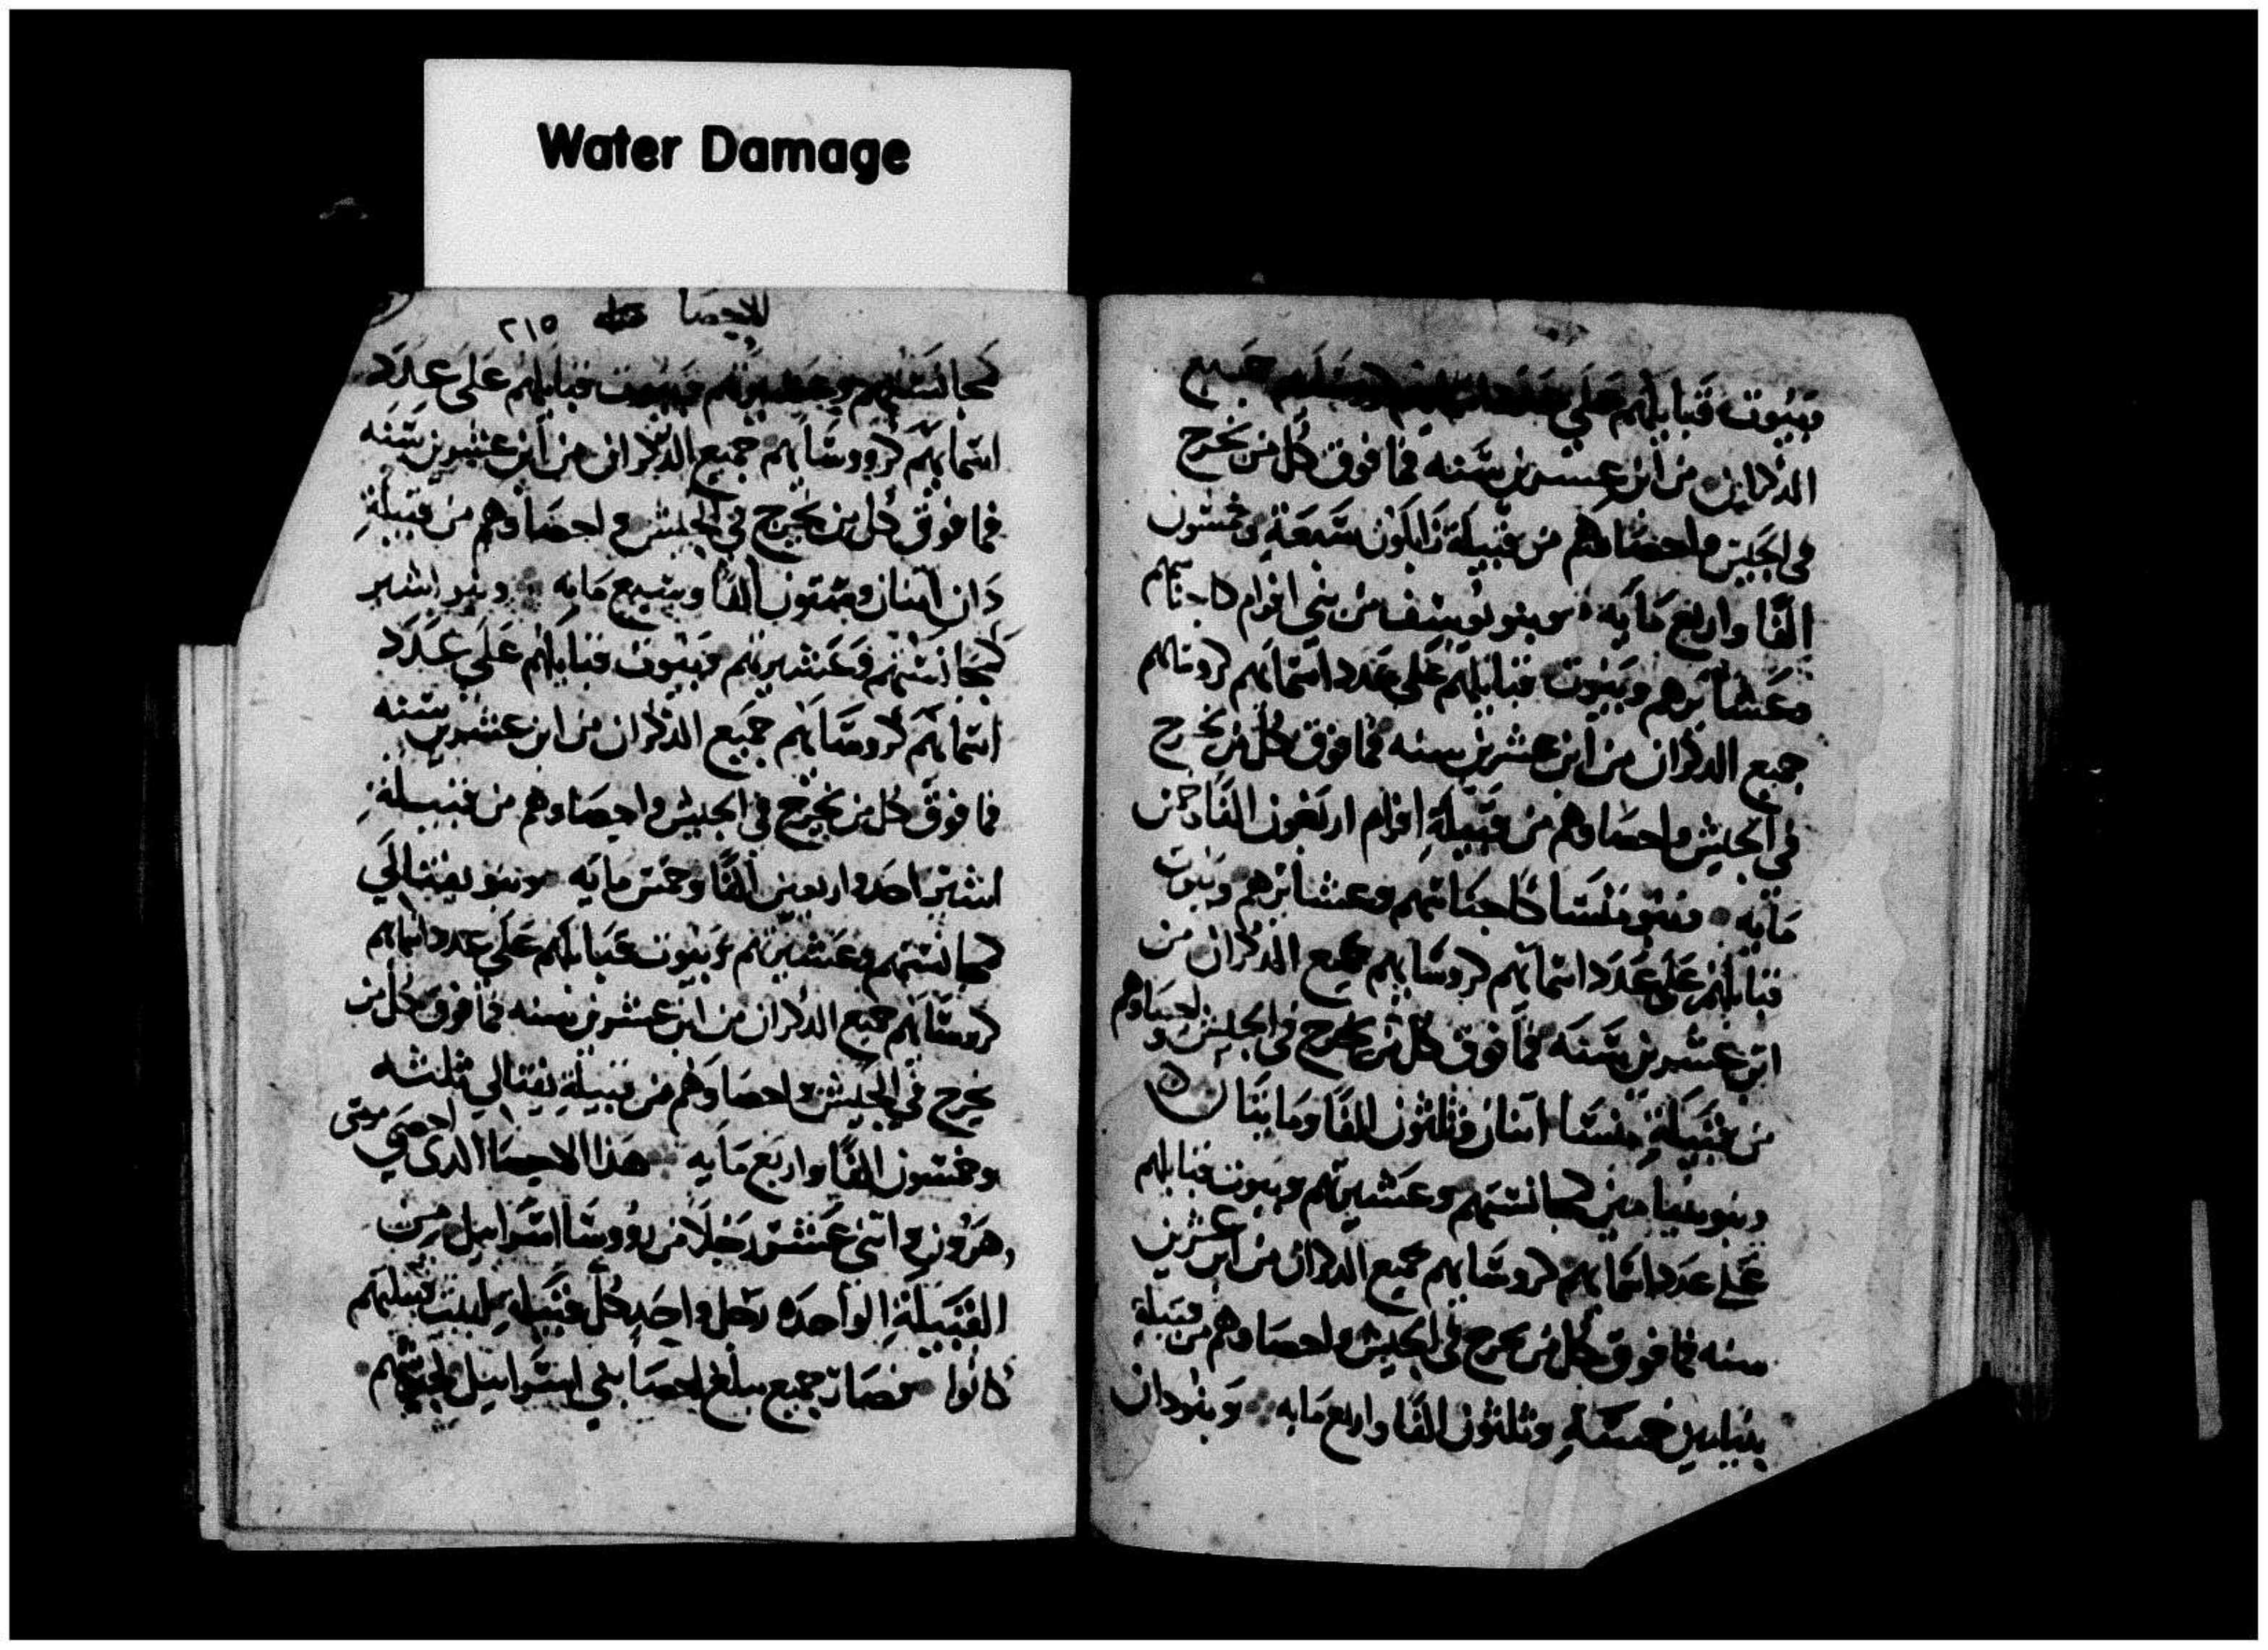 Water Damage
وبيوت قبايلهم على جميع
الذكران من ابن عشرين سنه فما فوق كل من يخرج
في الجيش واحصاوهم من قبيلة زابلون سبعة وخمسون
الفًا واربع مايه وبنو يوسف من بني افرام كاجناسهم
وعشايرهم وبيوت قبايلهم على عدد اسمايهم كروسايهم
جميع الذكران من ابن عشرين سنه فما فوق كل من يخرج
في الجيش واحصاوهم من قبيلة افرام اربعون الفًا وخمس
مايه وبنو منسا كاجناسهم وعشايرهم وبيوت
قبايلهم على عدد اسمايهم كروسايهم جميع الذكران من
ابن عشرين سنه فما فوق كل من يخرج في الجيش واحصاوهم
من قبيلة منسا اثنان وثلثون الفًا ومايتان
وبنو بنيامين كمجانستهم وعشيرتهم وبيوت قبايلهم
على عدد اسمايهم كروسايهم جميع الذكران من ابن عشرين
سنه فما فوق كل من يخرج في الجيش واحصاوهم من قبيلة
بنيامين خمسة وثلثون الفًا واربع مايه وبنو دان
للاحصا ٢١٥
كمجانستهم وعشيرتهم وبيوت قبايلهم على عدد
اسمايهم كرووسايهم جميع الذكران من ابن عشرين سنه
فما فوق كل من يخرج في الجيش واحصاوهم من قبيلة
دان اثنان وستون الفًا وسبع مايه وبنو اشير
كمجانستهم وعشيرتهم وبيوت قبايلهم على عدد
اسمايهم كروسايهم جميع الذكران من ابن عشرين سنه
فما فوق كل من يخرج في الجيش واحصاوهم من قبيلة
اشير احد واربعين الفًا وخمس مايه وبنو يفتالي
كمجانستهم وعشيرتهم وبيوت قبايلهم على عدد اسمايهم
كروسايهم جميع الذكران من ابن عشرين سنه فما فوق كل من
يخرج في الجيش واحصاوهم من قبيلة يفتالي ثلثه
وخمسون الفًا واربع مايه هذا الاحصا الذي احصى موسى
وهرون واثنى عشر رجلًا من رووسا اسراييل من
القبيلة الواحده رجل واحد كل قبيلة لبيت قبيلتهم
كانوا فصار جميع مبلغ احصا بني اسراييل